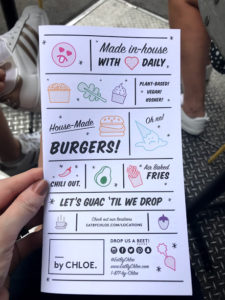 Made in-house
WITH DAILY
PLANT-BASED!
VEGAN!
KOSHER!
House-Made
Oh no!
BURGERS!
CHILL OUT.
Air Baked
FRIES
LET'S GUAC 'TIL WE DROP
Check out our locations
EATBYCHLOE.COM/LOCATIONS
by CHLOE.
DROP US A BEET!
@EatByChloe
www.EatByChloe.com
1-877-by-Chloe